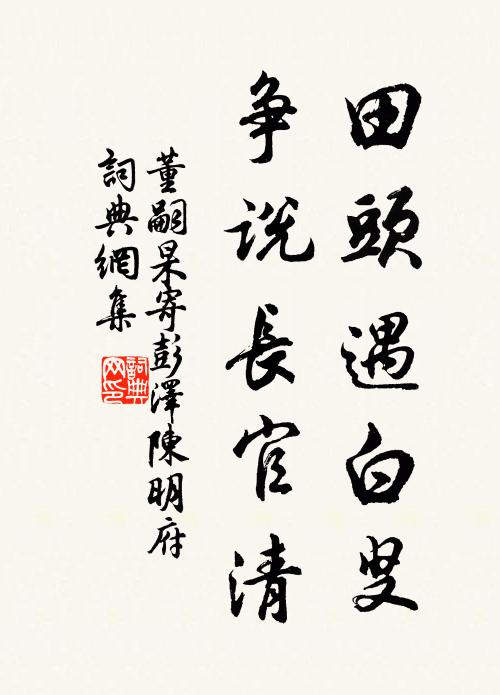 田頭遇白叟
争説長官清
董嗣杲寄彭澤陳明府
詞典網集
詞典網印